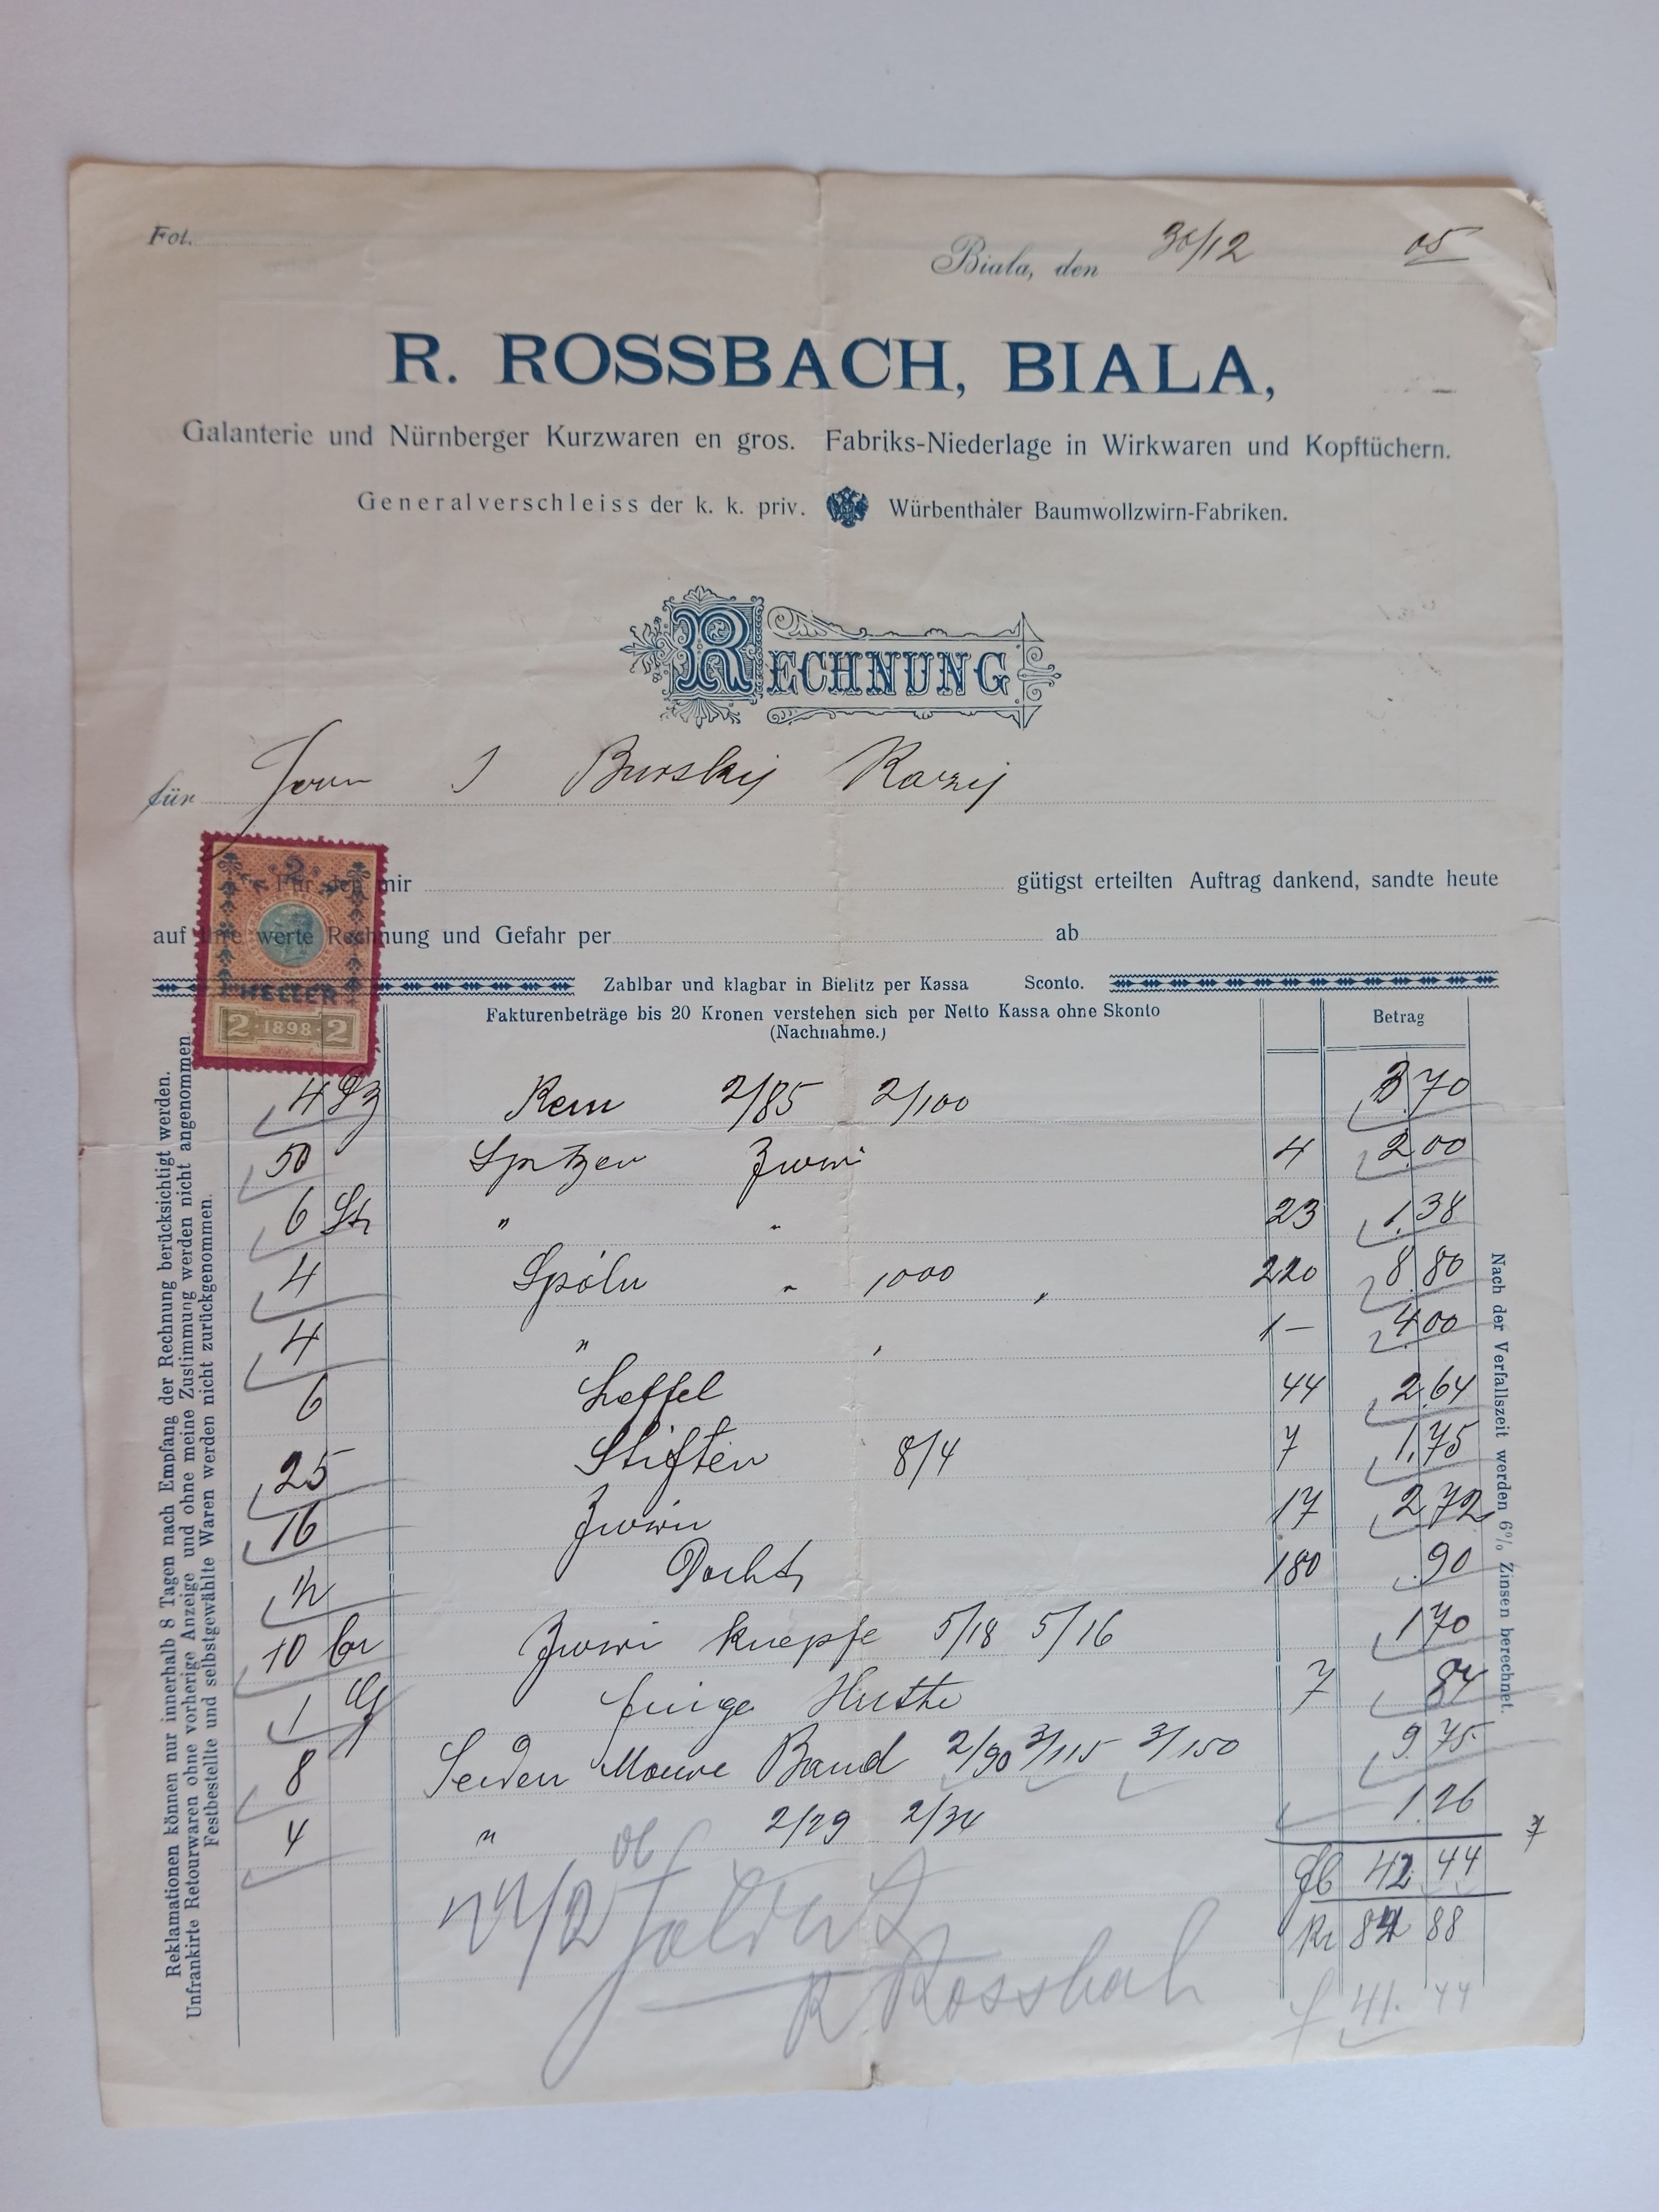 Fol.
Biala, den 30/12 05
R. ROSSBACH, BIALA,
Galanterie und Nürnberger Kurzwaren en gros. Fabriks-Niederlage in Wirkwaren und Kopftüchern.
Generalverschleiss der k. k. priv. Würbenthaler Baumwollzwirn-Fabriken.
RECHNUNG
für Herrn J Burskij
Für den mir gütigst erteilten Auftrag dankend, sandte heute
auf Ihre werte Rechnung und Gefahr per ab
2
HELLER
2 1898 2
Zahlbar und klagbar in Bielitz per Kassa Sconto.
Fakturenbeträge bis 20 Kronen verstehen sich per Netto Kassa ohne Skonto
(Nachnahme.)
Betrag
4 Dz 2/85 2/100 3.70
50 Spitzen Zwirn 4 2.00
6 St " " 23 1.38
4 1000 220 8.80
4 " 1– 4.00
6 Loffel 44 2.64
25 Stiften 8/4 7 1.75
16 Zwirn 17 2.72
Docht 180 .90
10 Gr Zwirn Knepfe 5/18 5/16 1.70
1 7 84
8 Seiden Band 2/90 3/115 3/150 9.75
4 " 2/29 2/34 1.26
42 44
Kr 84 88
41. 44
R Rossbach
Reklamationen können nur innerhalb 8 Tagen nach Empfang der Rechnung berücksichtigt werden.
Unfrankirte Retourwaren ohne vorherige Anzeige und ohne meine Zustimmung werden nicht angenommen.
Festbestellte und selbstgewählte Waren werden nicht zurückgenommen.
Nach der Verfallszeit werden 6% Zinsen berechnet.